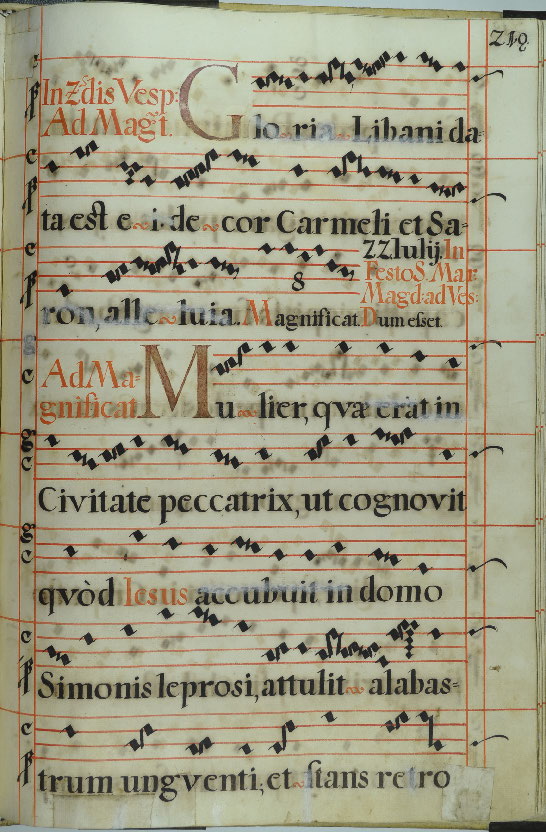 219
In 2ꝭ dis Vesp:
Ad Magt. Glo~ria~Libani da=
ta est e~i. de~cor Carmeli et Sa=
ron, alle~luia. Magnificat. Dum esset
22. Iulij. In
Festo S. Mar:
Magd: ad Ves:
8
Ad Ma=
gnificat Mu~lier, qvæ erat in
Civitate peccatrix, ut cognovit
qvòd Iesus accubuit in domo
Simonis leprosi, attulit~alabas=
trum ungventi, et~stans retro